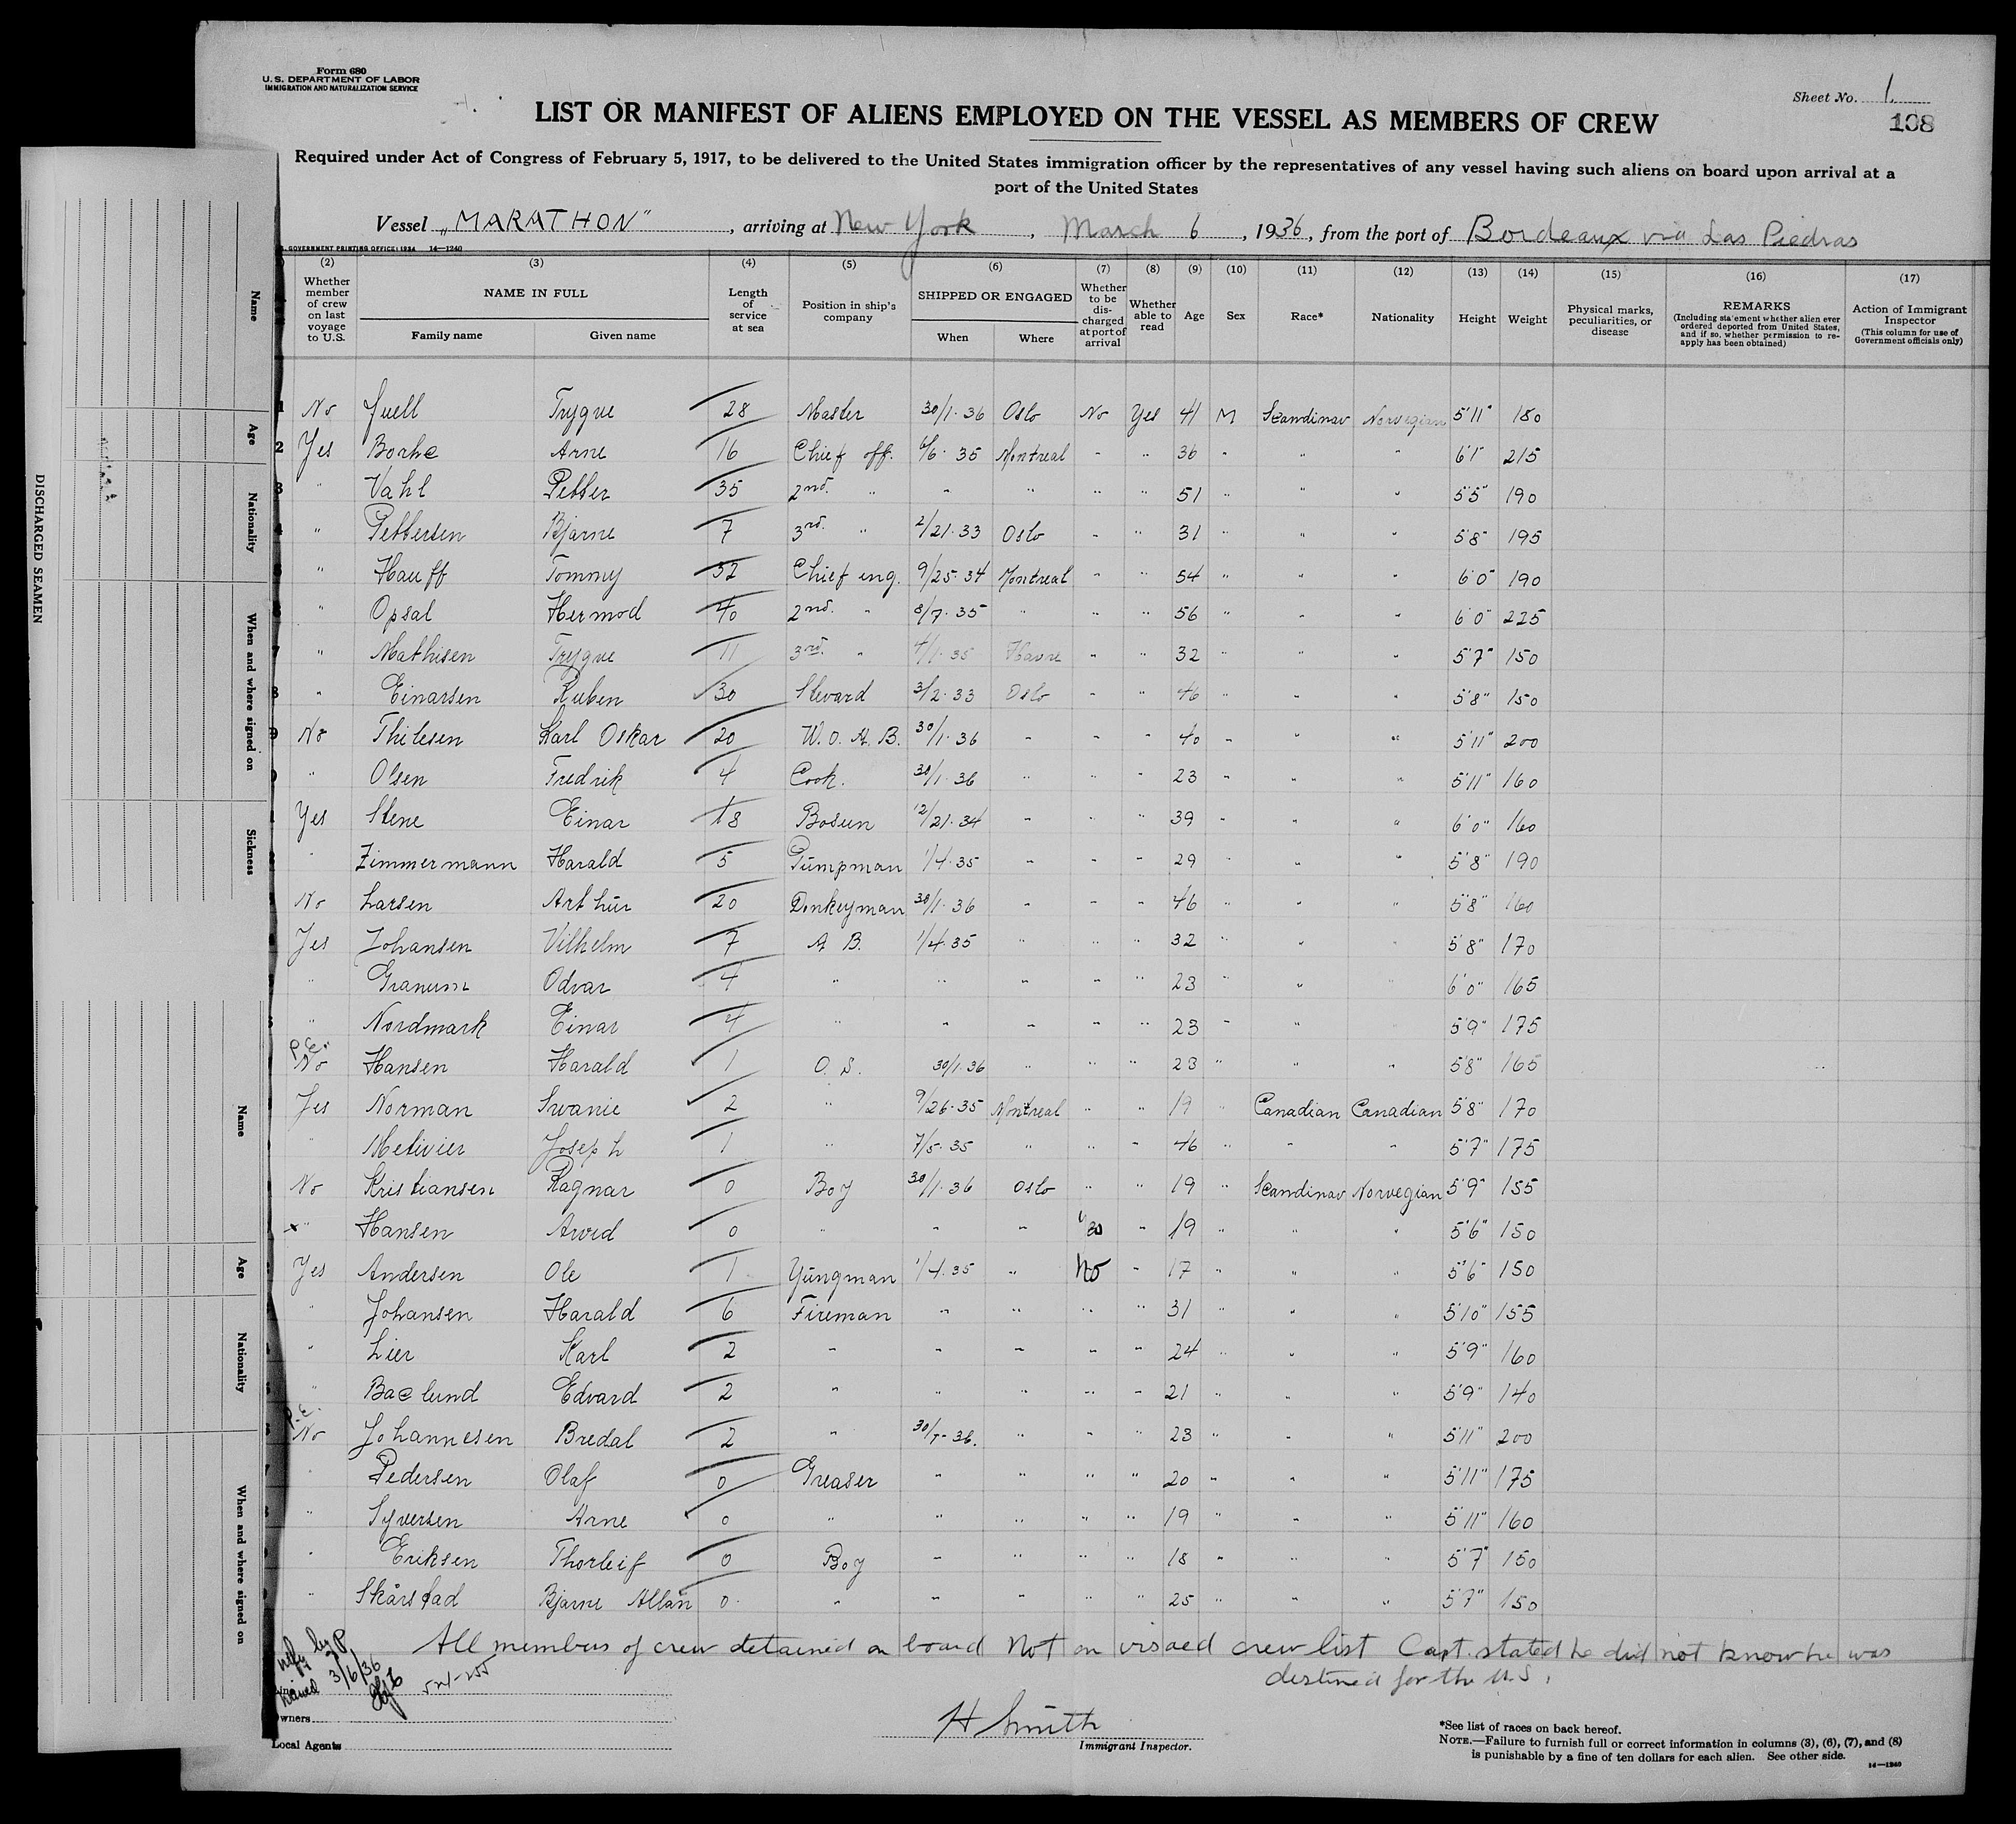 Form 680
U. S. DEPARTMENT OF LABOR
IMMIGRATION AND NATURALIZATION SERVICE
Sheet No. 1.
108
LIST OR MANIFEST OF ALIENS EMPLOYED ON THE VESSEL AS MEMBERS OF CREW
Required under Act of Congress of February 5, 1917, to be delivered to the United States immigration officer by the representatives of any vessel having such aliens on board upon arrival at a
port of the United States
Vessel „MARATHON", arriving at New York, March 6, 1936, from the port of Bordeaux via Las Piedras
GOVERNMENT PRINTING OFFICE: 1934 14—1240
(2) (3) (4) (5) (6) (7) (8) (9) (10) (11) (12) (13) (14) (15) (16) (17)
Whether member of crew on last voyage to U.S. NAME IN FULL Family name Given name Length of service at sea Position in ship's company SHIPPED OR ENGAGED When Where Whether to be discharged at port of arrival Whether able to read Age Sex Race* Nationality Height Weight Physical marks, peculiarities, or disease REMARKS (Including statement whether alien ever ordered deported from United States, and if so, whether permission to reapply has been obtained) Action of Immigrant Inspector (This column for use of Government officials only)
1 No Juell Trygve 28 Master 30/1-36 Oslo No Yes 41 M Scandinav Norwegian 5'11" 180
2 Yes Borhe Arne 16 Chief off. 6/6-35 Montreal " " 36 " " " 6'1" 215
3 " Vahl Petter 35 2nd. " " " " " 51 " " " 5'5" 190
4 " Pettersen Bjarne 7 3rd. " 2/21-33 Oslo " " 31 " " " 5'8" 195
" Hauff Tommy 32 Chief eng. 9/25-34 Montreal " " 54 " " " 6'0" 190
" Opsal Hermod 40 2nd. " 8/7-35 " " " 56 " " " 6'0" 225
7 " Mathisen Trygve 11 3rd. " 4/1-35 Havre " " 32 " " " 5'7" 150
8 " Einarsen Ruben 30 Stevard 3/2-33 Oslo " " 46 " " " 5'8" 150
9 No Thilesen Karl Oskar 20 W.O. A.B. 30/1-36 " " " 40 " " " 5'11" 200
" Olsen Fredrik 4 Cook. 30/1-36 " " " 23 " " " 5'11" 160
Yes Stene Einar 18 Bosun 12/21-34 " " " 39 " " " 6'0" 160
" Zimmermann Harald 5 Pumpman 1/4-35 " " " 29 " " " 5'8" 190
No Larsen Arthur 20 Donkeyman 30/1-36 " " " 46 " " " 5'8" 160
Yes Johansen Vilhelm 7 A B. 1/4-35 " " " 32 " " " 5'8" 170
" Granum Odvar 4 " " " " " 23 " " 6'0" 165
" Nordmark Einar 4 " " " " " 23 " " 5'9" 175
P.E.
No Hansen Harald 1 O. S. 30/1-36 " " " 23 " " " 5'8" 165
Yes Norman Swanie 2 " 9/26-35 Montreal " " 19 " Canadian Canadian 5'8" 170
" Metivier Joseph 1 " 7/5-35 " " " 46 " " " 5'7" 175
No Kristiansen Ragnar 0 Boy 30/1-36 Oslo " " 19 " Scandinav Norwegian 5'9" 155
x " Hansen Arvid 0 " " " " 19 " " " 5'6" 150
Yes Andersen Ole 1 Yungman 1/4-35 " No " 17 " " " 5'6" 150
" Johansen Harald 6 Fireman " " " " 31 " " " 5'10" 155
" Lier Karl 2 " " " " " 24 " " " 5'9" 160
" Baclund Edvard 2 " " " " " 21 " " " 5'9" 140
P.E.
No Johannesen Bredal 2 " 30/1-36. " " " 23 " " " 5'11" 200
" Pedersen Olaf 0 Greaser " " " " 20 " " " 5'11" 175
" Syversen Arne 0 " " " " " 19 " " " 5'11" 160
" Eriksen Thorleif 0 Boy " " " " 18 " " " 5'7" 150
" Skårstad Bjarne Allan 0 " " " " " 25 " " " 5'7" 150
All members of crew detained on board Not on visaed crew list Capt. stated he did not know he was
destined for the U.S.
3/6/36
Owners
Local Agents
H Smith
Immigrant Inspector.
*See list of races on back hereof.
NOTE.—Failure to furnish full or correct information in columns (3), (6), (7), and (8)
is punishable by a fine of ten dollars for each alien. See other side.
14—1240
DISCHARGED SEAMEN
Name
Age
Nationality
When and where signed on
Sickness
Name
Age
Nationality
When and where signed on